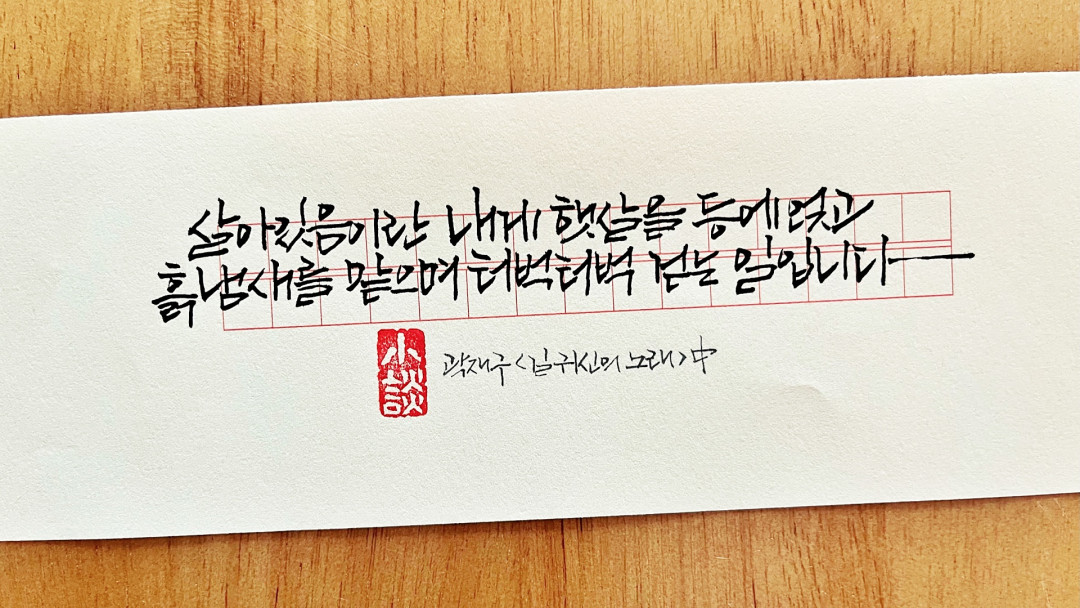 살아있음이란 내게 햇살을 등에 얹고
흙냄새를 맡으며 터벅터벅 걷는 일입니다
小談
곽재구 <길귀신의 노래> 中